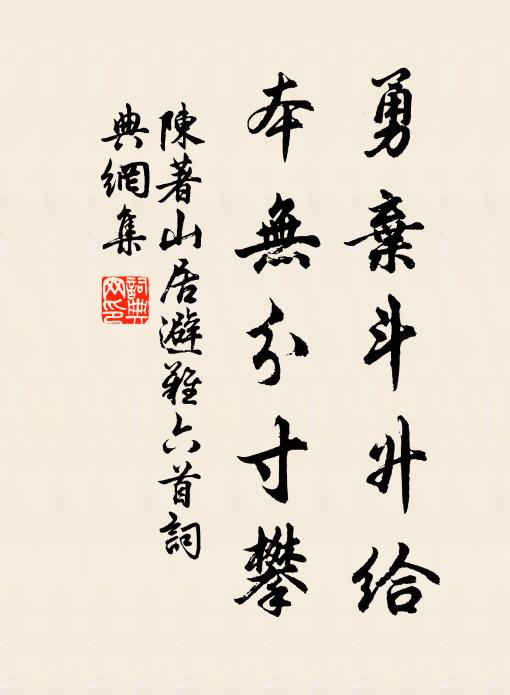 勇棄斗升給
本無分寸攀
陳著山居避難六首詞
典網集
詞典
网印